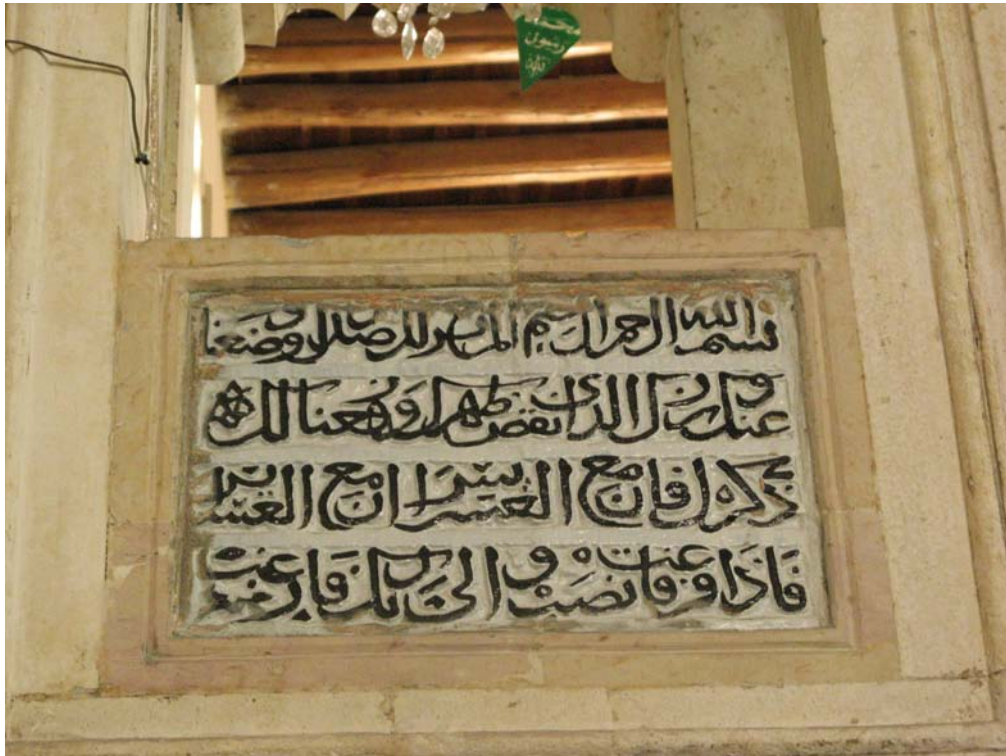 محمد
رسول
الله
بسم الله الرحمن الرحيم ألم نشرح لك صدرك ووضعنا
عنك وزرك الذي أنقض ظهرك ورفعنا لك
ذكرك فإن مع العسر يسرا إن مع العسر يسرا
فإذا فرغت فانصب وإلى ربك فارغب